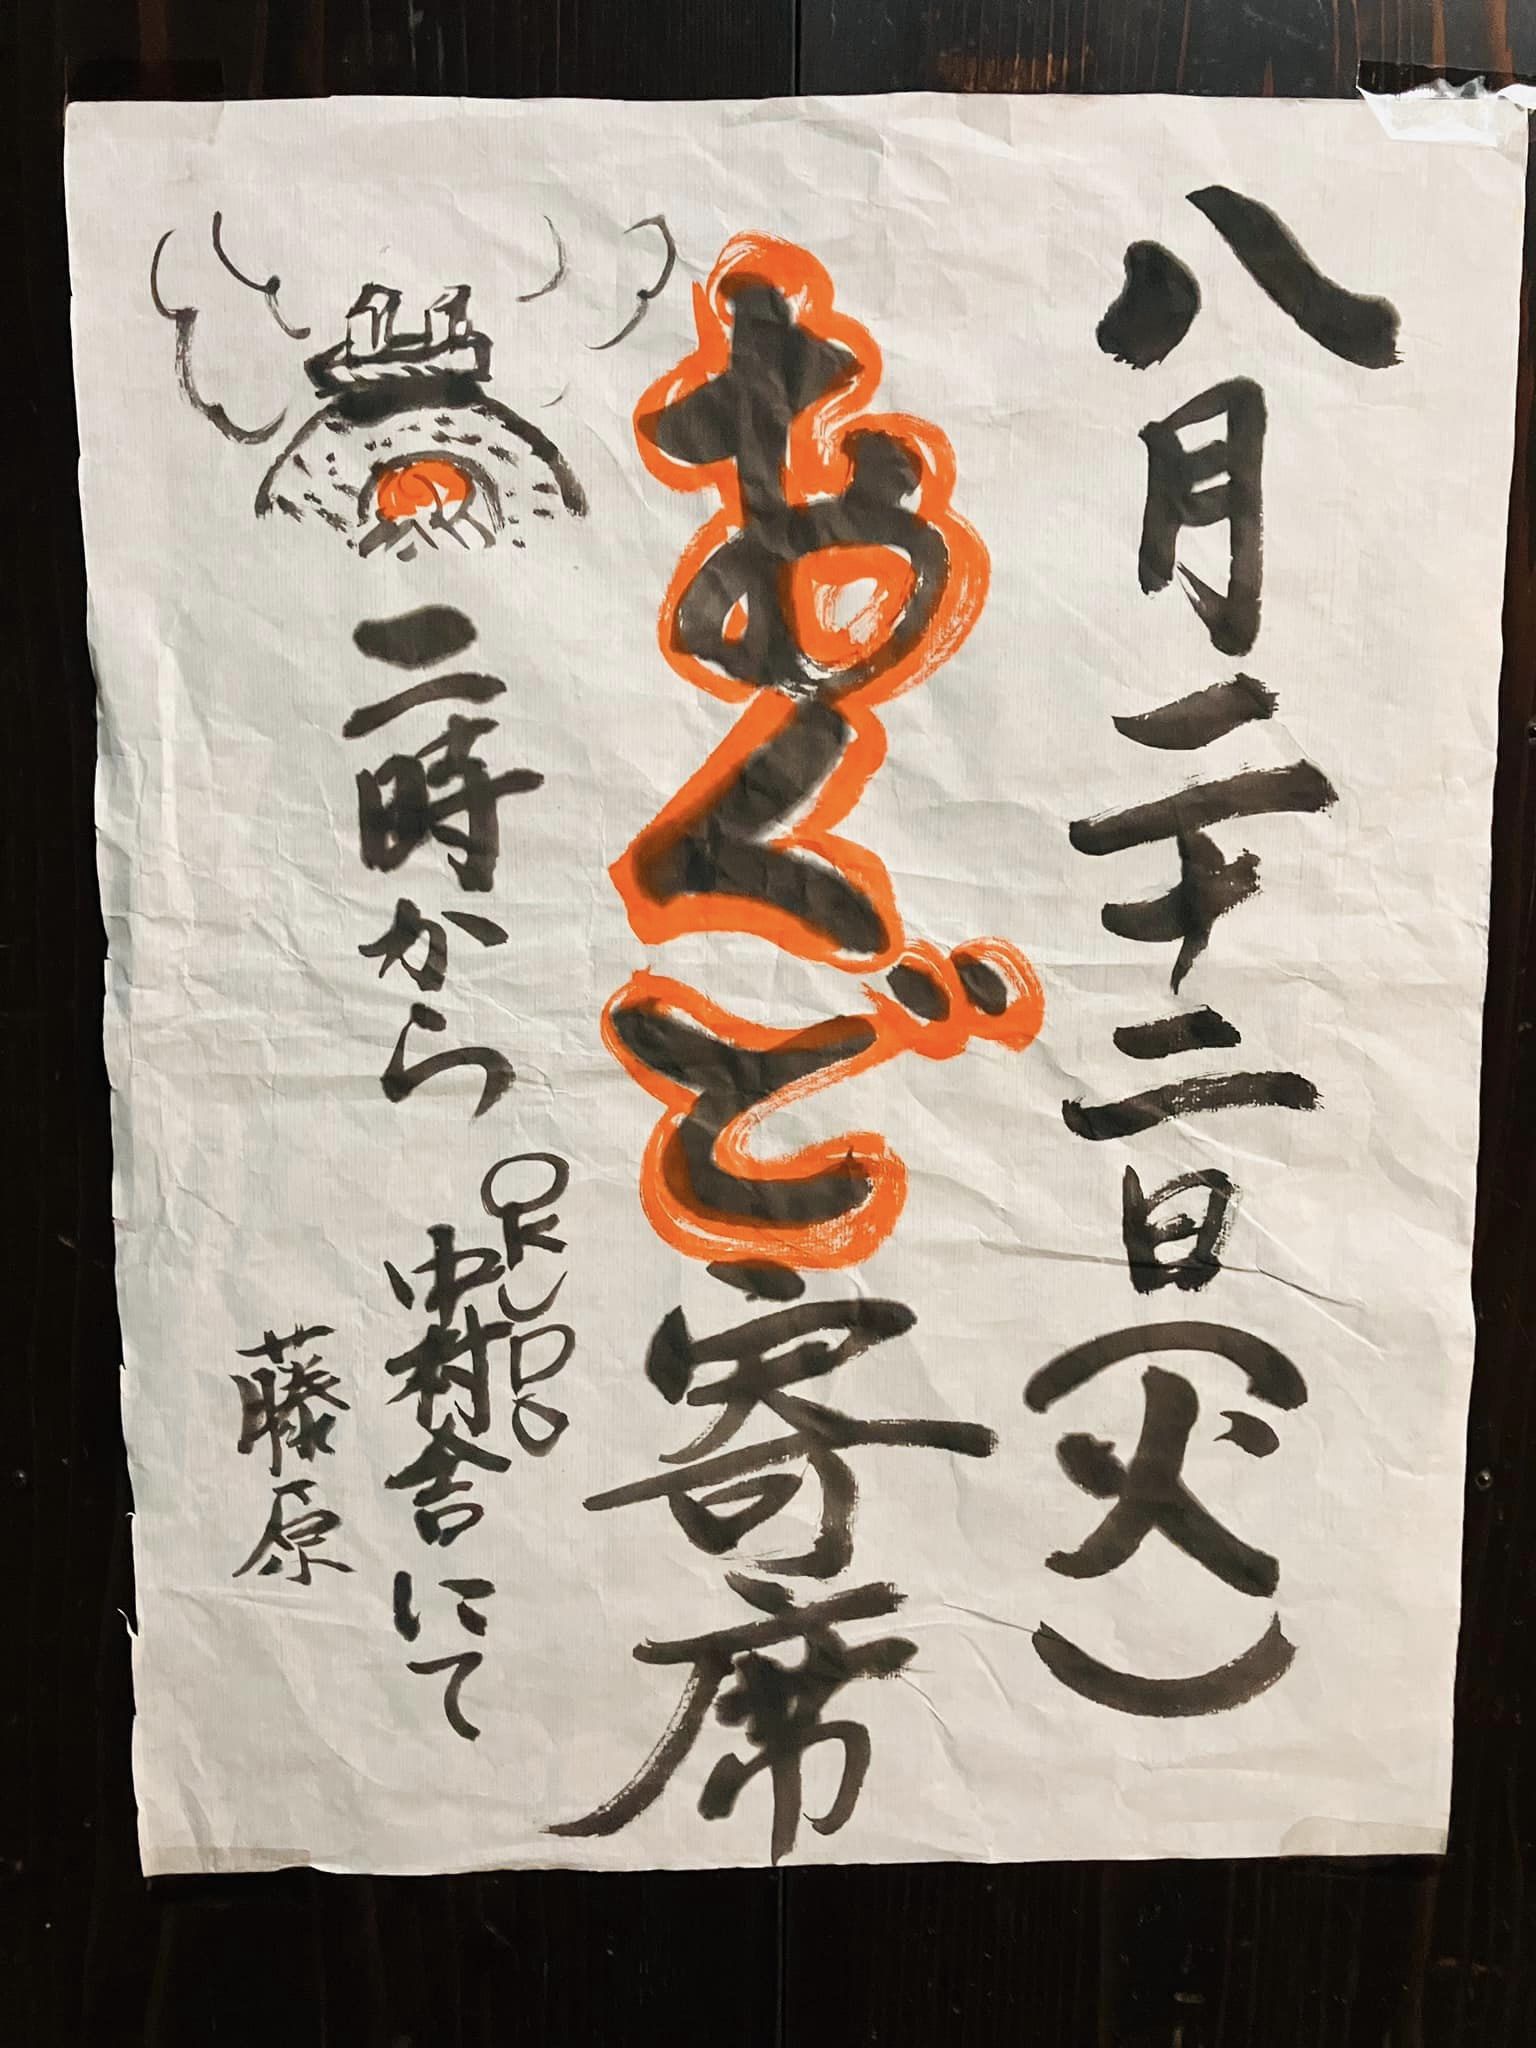 八月二十二日(火)
おくど寄席
二時から
OKUDO
中村舎にて
藤原